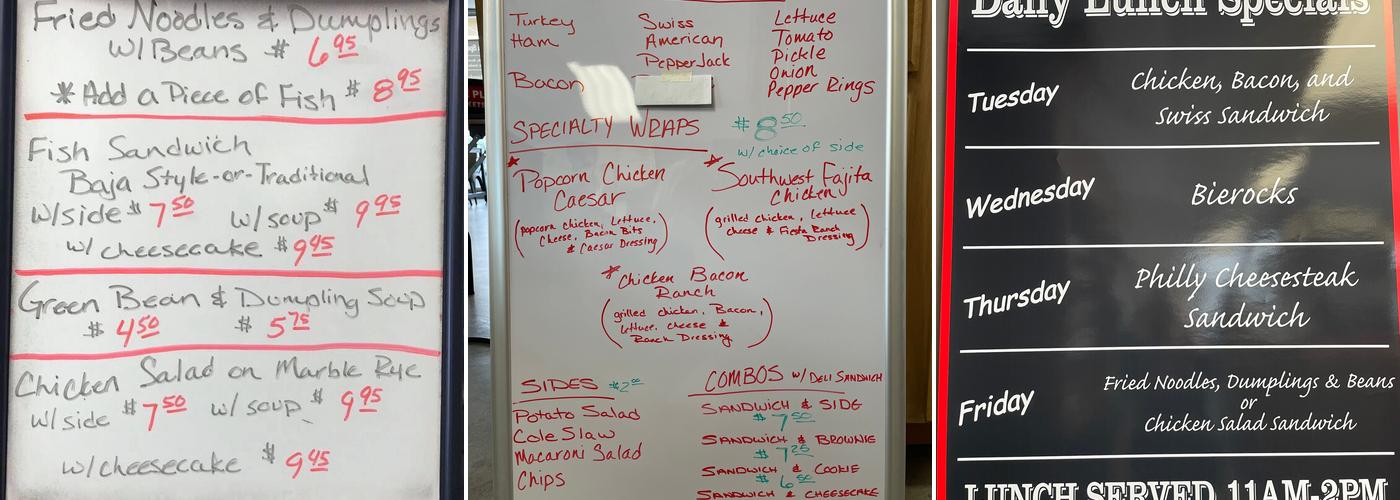 Fried Noodles & Dumplings
w/Beans $ 6.95
*Add a Piece of Fish $ 8.95
Fish Sandwich
Baja Style-or-Traditional
w/side $ 7.50 w/soup $ 9.95
w/ cheesecake $ 9.45
Green Bean & Dumpling Soup
$ 4.50 $ 5.75
Chicken Salad on Marble Rye
w/side $ 7.50 w/ soup $ 9.95
w/cheesecake $ 9.45
Turkey
Ham
Bacon
Swiss
American
PepperJack
Lettuce
Tomato
Pickle
Onion
Pepper Rings
SPECIALTY WRAPS $ 8.50
w/choice of side
*Popcorn Chicken
Caesar
(popcorn chicken, Lettuce,
Cheese, Bacon Bits
& Caesar Dressing)
*Southwest Fajita
Chicken
(grilled chicken, lettuce
cheese & Fiesta Ranch
Dressing)
*Chicken Bacon
Ranch
(grilled chicken, Bacon,
lettuce, cheese &
Ranch Dressing)
SIDES $2.00
Potato Salad
Cole Slaw
Macaroni Salad
Chips
COMBOS w/ DELI SANDWICH
SANDWICH & SIDE
$ 7.50
SANDWICH & BROWNIE
$ 7.25
SANDWICH & COOKIE
$ 6.50
SANDWICH & CHEESECAKE
Daily Lunch Specials
Tuesday
Chicken, Bacon, and
Swiss Sandwich
Wednesday
Bierocks
Thursday
Philly Cheesesteak
Sandwich
Friday
Fried Noodles, Dumplings & Beans
or
Chicken Salad Sandwich
LUNCH SERVED 11AM-2PM